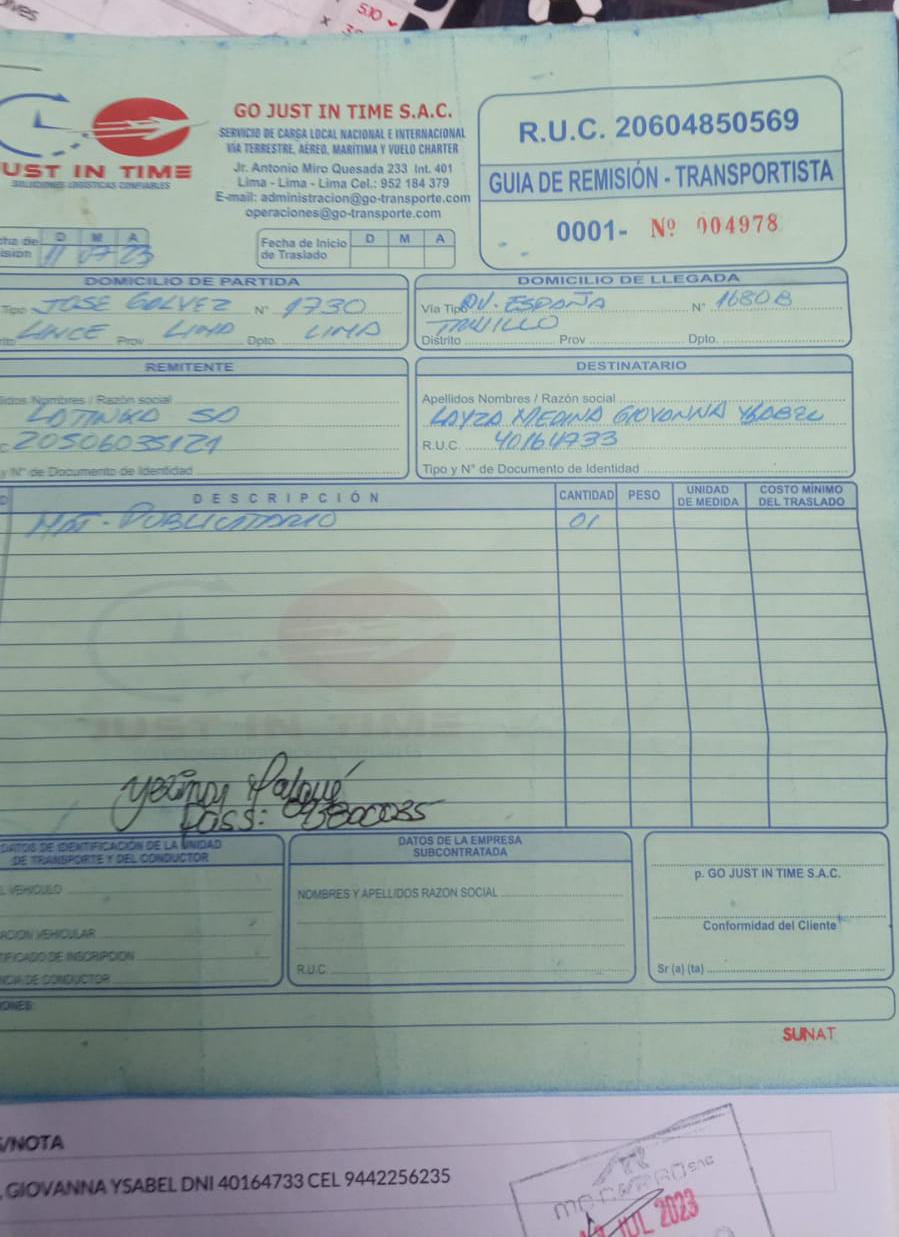 ves
5.10
JUST IN TIME
SOLUCIONES LOGISTICAS CONFIABLES
GO JUST IN TIME S.A.C.
SERVICIO DE CARGA LOCAL NACIONAL E INTERNACIONAL
VÍA TERRESTRE, AÉREO, MARÍTIMA Y VUELO CHARTER
Jr. Antonio Miro Quesada 233 Int. 401
Lima - Lima - Lima Cel.: 952 184 379
E-mail: administracion@go-transporte.com
operaciones@go-transporte.com
R.U.C. 20604850569
GUIA DE REMISIÓN - TRANSPORTISTA
0001- Nº 004978
cha de D M A
isión 11 07 23
Fecha de Inicio D M A
de Traslado
DOMICILIO DE PARTIDA
Tipo JOSE GALVEZ N° 1730
rito LINCE Prov LIMA Dpto. LIMA
DOMICILIO DE LLEGADA
Vía Tipo AV. ESPAÑA N° 1680B
TRUJILLO
Distrito Prov Dpto.
REMITENTE
lidos Nombres / Razón social
LATINKA SA
C 20506035121
y N° de Documento de Identidad
DESTINATARIO
Apellidos Nombres / Razón social
LAYZA MEDINA GIOVANNA YSABEL
R.U.C. 40164733
Tipo y N° de Documento de Identidad
DESCRIPCIÓN CANTIDAD PESO UNIDAD DE MEDIDA COSTO MÍNIMO DEL TRASLADO
MAT. PUBLICITARIO 01
JUST IN TIME
PASS: 093800035
DATOS DE IDENTIFICACIÓN DE LA UNIDAD
DE TRANSPORTE Y DEL CONDUCTOR
L VEHICULO
ACION VEHICULAR
TIFICADO DE INSCRIPCION
NCIA DE CONDUCTOR
DATOS DE LA EMPRESA
SUBCONTRATADA
NOMBRES Y APELLIDOS RAZON SOCIAL
R.U.C.
p. GO JUST IN TIME S.A.C.
Conformidad del Cliente
Sr (a) (ta)
ONES:
SUNAT
S/NOTA
, GIOVANNA YSABEL DNI 40164733 CEL 9442256235
JUL 2023